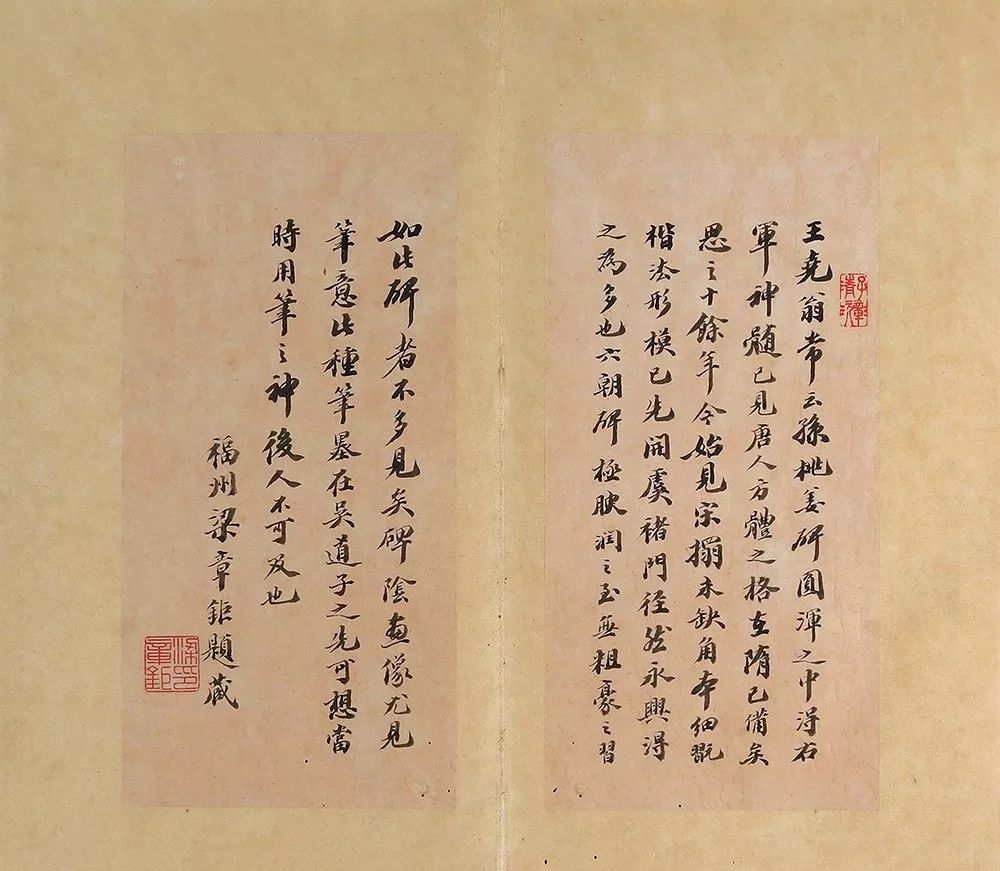 王堯翁常云孫桃姜碑圓渾之中淂右
軍神髓已見唐人方體之格在隋已備矣
思之十餘年今始見宋搨未缺角本細翫
楷法形模已先開虞褚門徑然永興淂
之為多也六朝碑極腴潤之至無粗豪之習
如此碑者不多見矣碑陰畫像尤見
筆意此種筆墨在吳道子之先可想當
時用筆之神後人不可及也
福州梁章鉅題藏
梁章鉅印